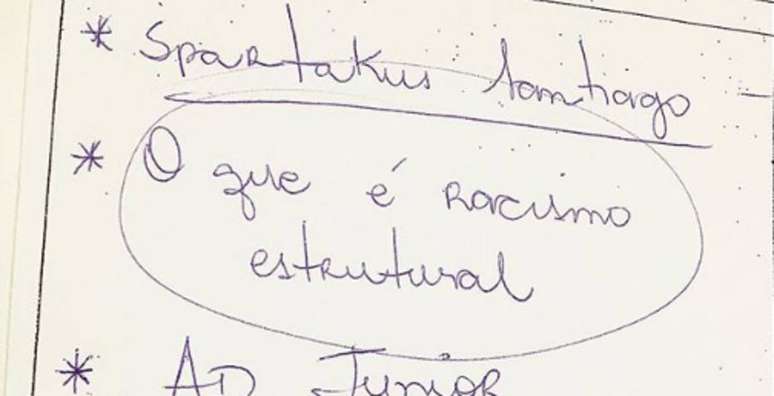 * Spartakus Santiago -
* O que é racismo
estrutural
* AD Junior